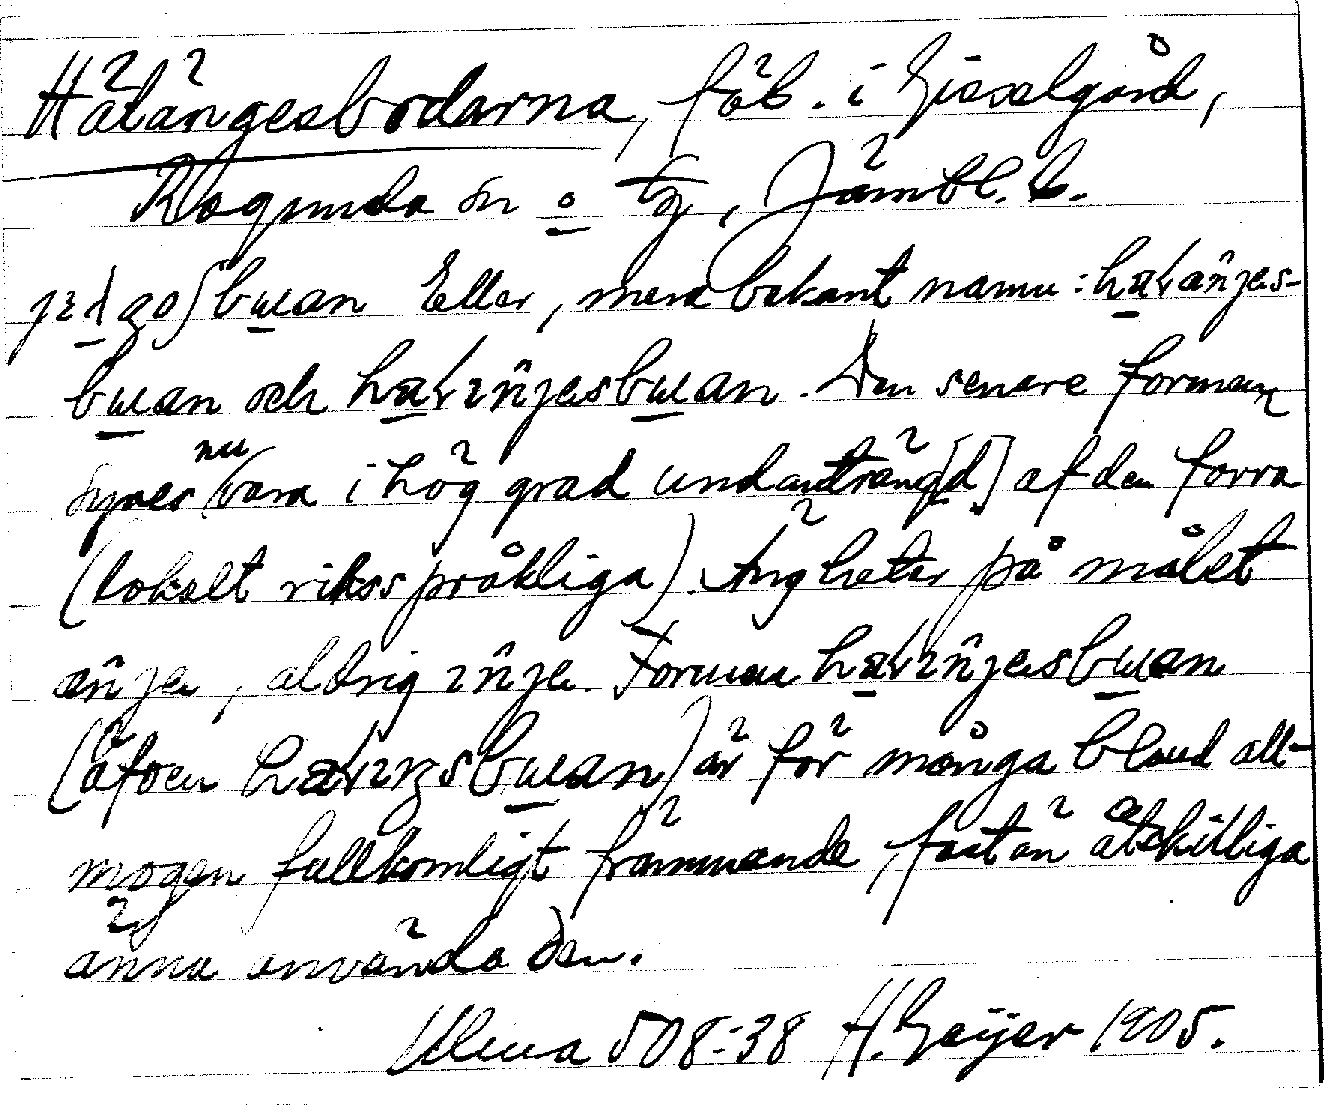 Hälängesbodarna, fäb. i Gisselgård,
Ragunda sn o tg, Jämtl. l.
buan Eller, mera bekant namn: haɽäñjes-
buan och haɽıñjesbuan. Den senare formen
synes nu vara i hög grad undanträng[d] af den förra
(lokalt riksspråkliga). Äng heter på målet
äñjen, aldrig ıñjen. Formen haɽıñjesbuan
(äfven haɽıŋsbuan) är för många bland all-
mogen fullkomligt främmande, fastän åtskilliga
ännu använda den.
Ulma 508:38 H. Geijer 1905.